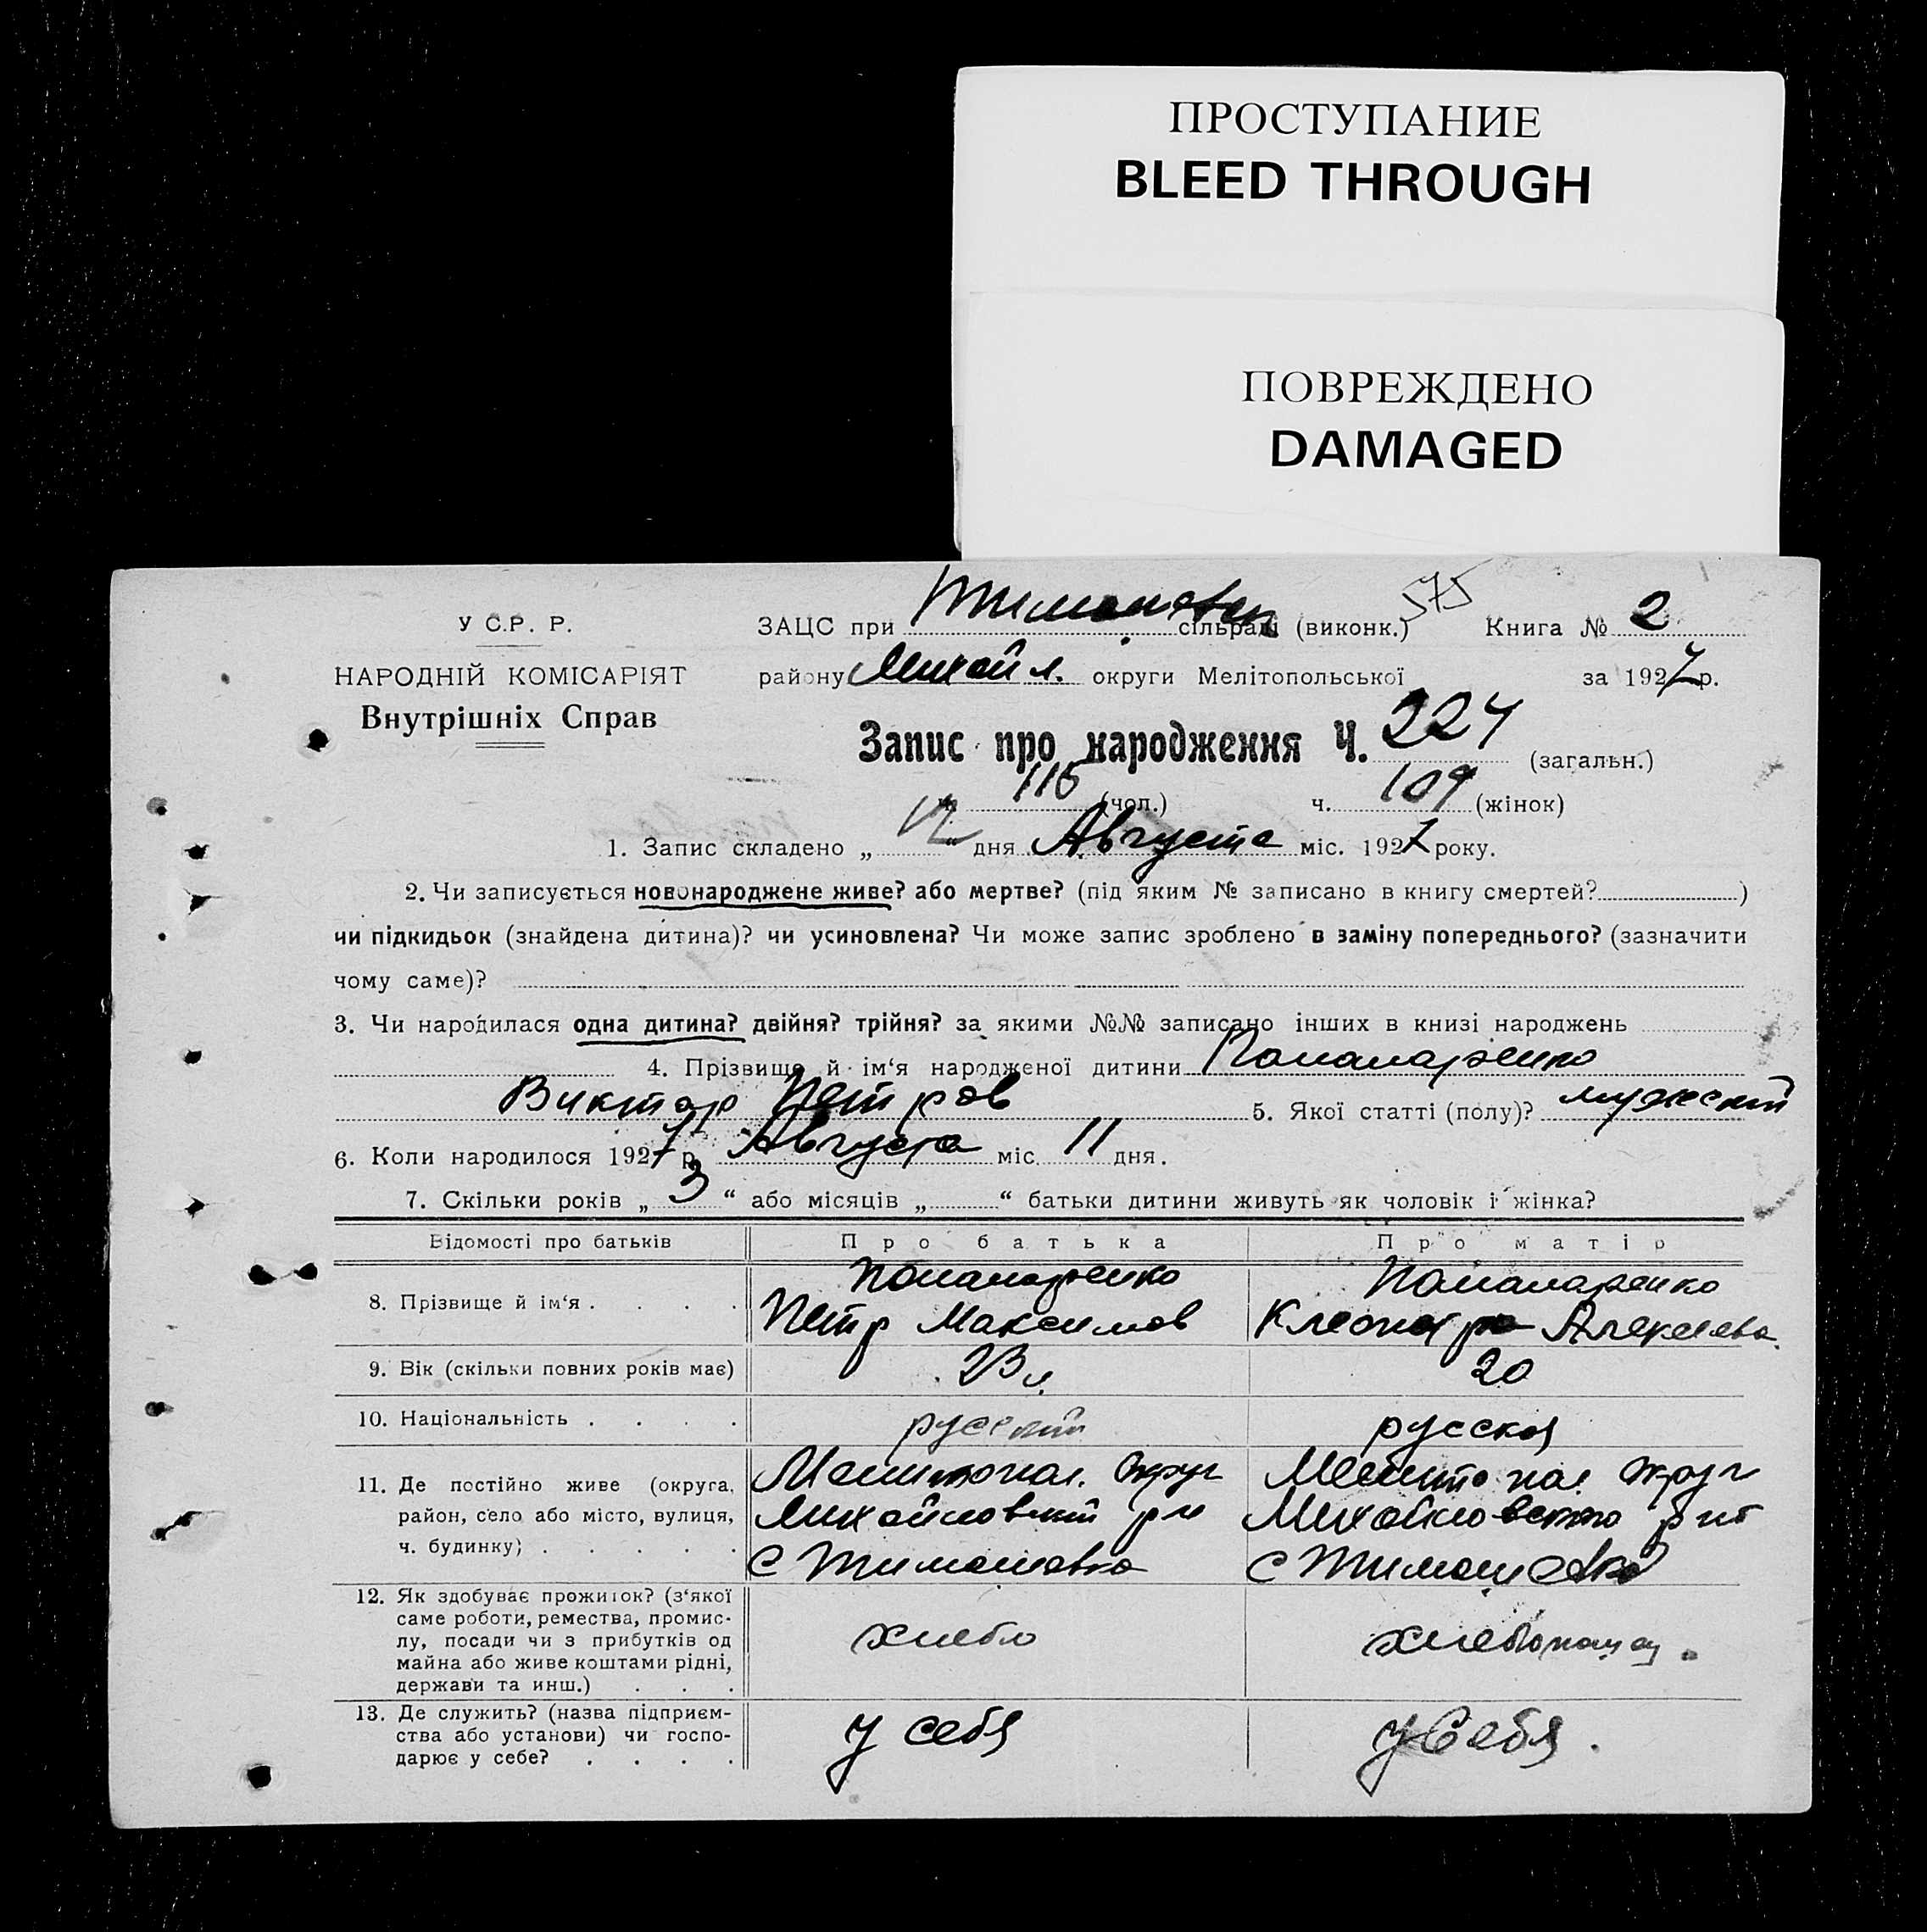 ПРОСТУПАНИЕ
BLEED THROUGH
ПОВРЕЖДЕНО
DAMAGED
575
У С.Р. Р. ЗАЦС при сільраді (виконк.) Книга № 2
НАРОДНІЙ КОМІСАРІЯТ району Михайл. округи Мелітопольської за 1927 р.
Внутрішніх Справ
Запис про народження Ч. 224 (загальн.)
ч. 115 (чол.) ч. 109 (жінок)
1. Запис складено „ 12 “ дня Августа міс. 1927 року.
2. Чи записується новонароджене живе? або мертве? (під яким № записано в книгу смертей? )
чи підкидьок (знайдена дитина)? чи усиновлена? Чи може запис зроблено в заміну попереднього? (зазначити
чому саме)?
3. Чи народилася одна дитина? двійня? трійня? за якими №№ записано інших в книзі народжень
4. Прізвище й ім‘я народженої дитини Понамаренко
Виктор Петров 5. Якої статті (полу)? мужский
6. Коли народилося 1927 р. Августа міс. 11 дня.
7. Скільки років „ 3 “ або місяців „ “ батьки дитини живуть як чоловік і жінка?
Відомості про батьків Про батька Про матір
8. Прізвище й ім‘я . . . . Понамаренко Петр Максимов Понамаренко Клеопатра Алексеева
9. Вік (скільки повних років має) 23 л. 20
10. Національність . . . . русский русская
11. Де постійно живе (округа, Мелитопол. Округ Мелитопол. Округ
район, село або місто, вулиця, Михайловский рн Михайловского
ч. будинку) . . . . . С Тимошовка С Тимошовка
12. Як здобуває прожиток? (з‘якої
саме роботи, ремества, промис-
лу, посади чи з прибутків од хлебо хлебопашец
майна або живе коштами рідні,
держави та инш.) . . .
13. Де служить? (назва підприєм-
ства або установи) чи госпо- у себя у себя.
дарює у себе? . . . .